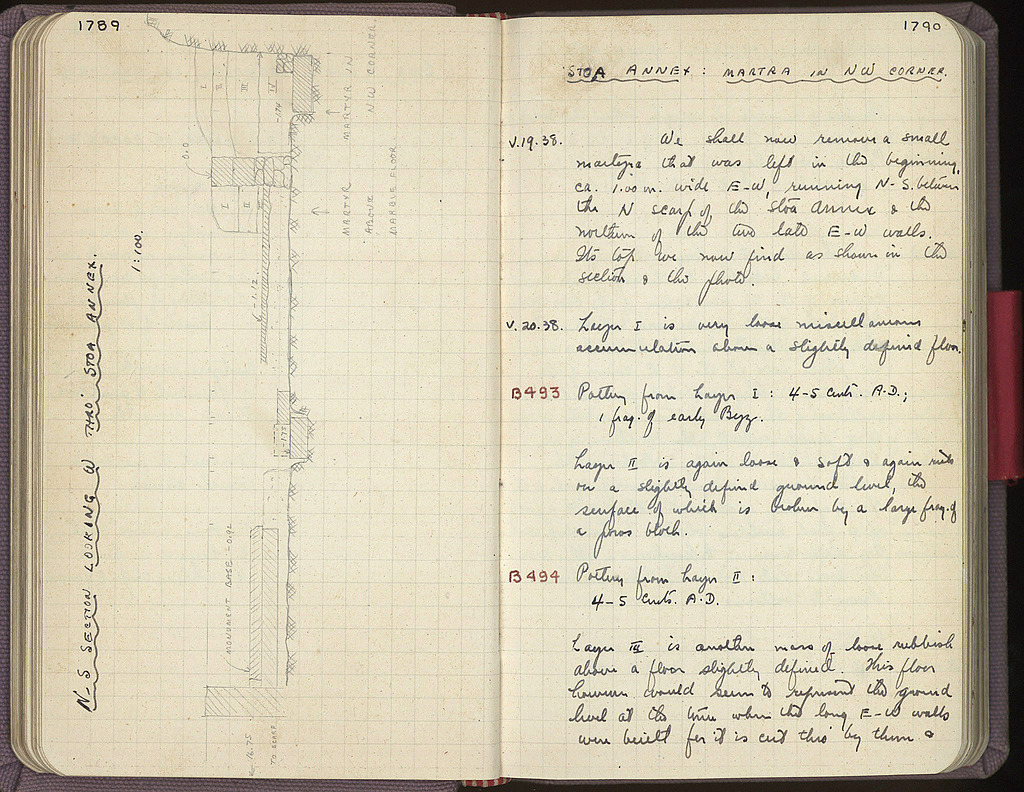 1789
N-S SECTION LOOKING W THRO' STOA ANNEX.
1:100.
0.0
I
II
III
IV
-1.74
MARTYR IN
NW CORNER
I
II
III
MARTYR
ABOVE
MARBLE FLOOR
-1.12
-1.75
MONUMENT BASE -0.92
16.75
TO SCARP
1790
STOA ANNEX: MARTRA IN NW CORNER.
V.19.38. We shall now remove a small
martyra that was left in the beginning,
ca. 1.00 m. wide E-W, running N-S. between
the N scarp of the Stoa Annex & the
northern of the two late E-W walls.
Its top we now find as shown in the
section & the photo.
V.20.38. Layer I is very loose miscellaneous
accumulation above a slightly defined floor.
B493 Pottery from Layer I: 4-5 Cents. A.D.;
1 frag. of early Byz.
Layer II is again loose & soft & again rests
on a slightly defined ground level, the
surface of which is broken by a large frag. of
a poros block.
B494 Pottery from Layer II:
4-5 Cents. A.D.
Layer III is another mass of loose rubbish
above a floor slightly defined. This floor
however would seem to represent the ground
level at the time when the long E-W walls
were built for it is cut thro' by them &